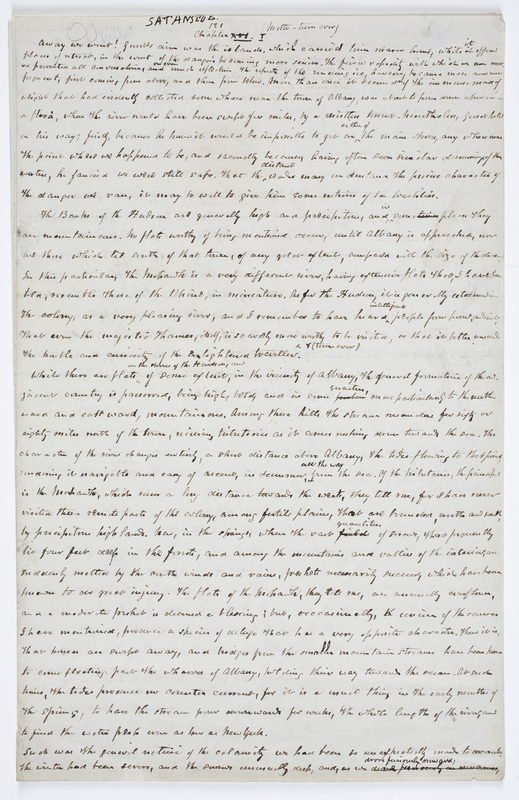 SATANSTOE.
121
Chapter XVI. I (Motto - turn over)
Away we went! Guert's aim was the islands, which carried him nearer home, while it offered
places of retreat, in the event of the danger becoming more serious. The fierce rapidity with which we now moved
prevented all conversation, or even much reflection. The reports of the rending ice, however, became more and more
frequent, first coming from above, and then from below. More than once it seemed as if the immense mass of
weight that had evidently collected some where near the town of Albany, was about to pour down upon us in
a flood, when the river would have been swept for miles, by a resistless torrent. Nevertheless, Guert held
on his way; firstly, because he knew it would be impossible to get on either of the main shores, any where near
the point where we happened to be, and secondly because, having often seen similar dammings of the
water, he fancied we were still safe. That the distant reader may understand the precise character of
the danger we ran, it may be well to give him some notions of the localities.
The Banks of the Hudson are generally high and precipitous, and in some places they
are mountainous. No flats worthy of being mentioned occur, until Albany is approached, nor
are those which lie south of that town, of any great extent, compared with the size of the stream.
In this particular the Mohawk is a very different river, having extensive flats that, I have been
told, resemble those of the Rhine, in miniature. As for the Hudson, it is generally esteemed in
the colony, as a very pleasing river, and I remember to have heard intelligent people from home, admit
that even the majestic Thames, itself, is scarcely more worthy to be visited, or that it better rewards
the trouble and curiosity of the enlightened traveller. * (turn over)
While there are flats of some extent, in the vicinity of Albany, the general formation of the ad-
jacent country is preserved, being high, bold, and in some quarters, more particularly to the north-
ward and eastward, mountainous. Among these hills the stream meanders for sixty or
eighty miles north of the town, receiving tributaries as it comes rushing down towards the sea. The
character of the river changes entirely, a short distance above Albany, the tides flowing to that point
rendering it navigable and easy of ascent, in summer, all the way from the sea. Of the tributaries, the principal
is the Mohawk, which runs a long distance towards the west, they tell me, for I have never
visited these remote parts of the colony, among fertile plains, that are bounded, north and south,
by precipitous highlands. Now, in the spring, when the vast quantities of snow, that frequently
lie four feet deep in the forest, and among the mountains and vallies of the interior, are
suddenly melted by the south winds and rains, freshets necessarily succeed, which have been
known to do great injury. The flats of the Mohawk, they tell me, are annually overflown,
and a moderate freshet is deemed a blessing; but, occasionally, the union of the causes
I have mentioned, produce a species of deluge that has a very opposite character. Thus it is,
that houses are swept away, and bridges from the smaller mountain streams have been known
to come floating past the wharves of Albany, holding their way towards the ocean. At such
times, the tides produce no counter current, for it is a usual thing, in the early months of
the spring, to have the stream pour downwards for weeks, the whole length of the river, and
to find the water fresh even as low as New York.
Such was the general nature of the calamity we had been so unexpectedly made to encounter.
The winter had been severe, and the snows unusually deep, and, as we drove furiously onward,